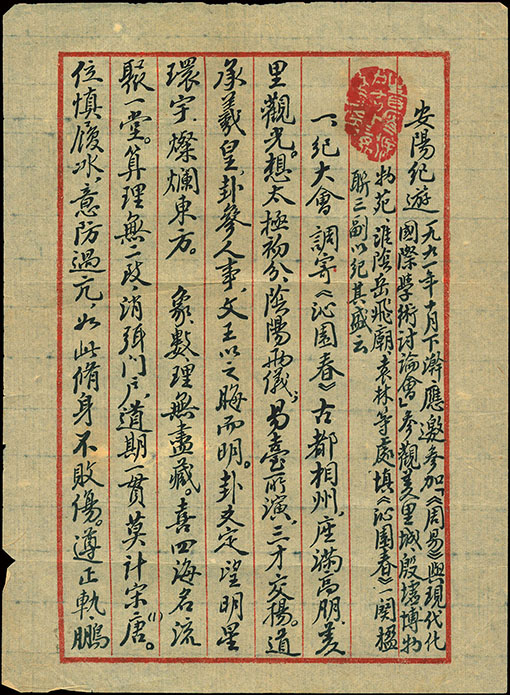 安陽紀遊 一九九一年十月下澣,應邀參加「《周易》與現代化
國際學術討論會」參觀羑里城、殷墟博物
物苑、淮陰岳飛廟、袁林等處,填《沁園春》一闋,楹
聯三副以紀其盛云
一、紀大會 調寄《沁園春》 古都相州,座滿高朋,羑
里觀光。想太極初分,陰陽兩儀;易臺所演,三才交揚。道
承羲皇,卦參人事,文王以之晦而明。卦爻定,望明星
環宇,燦爛東方。 象數理無盡藏。喜四海名流
聚一堂。算理無二致,消弭門戶,道期一貫,莫計宋唐。(1)
位慎履冰,意防過亢,如此脩身不敗傷。遵正軌,鵬